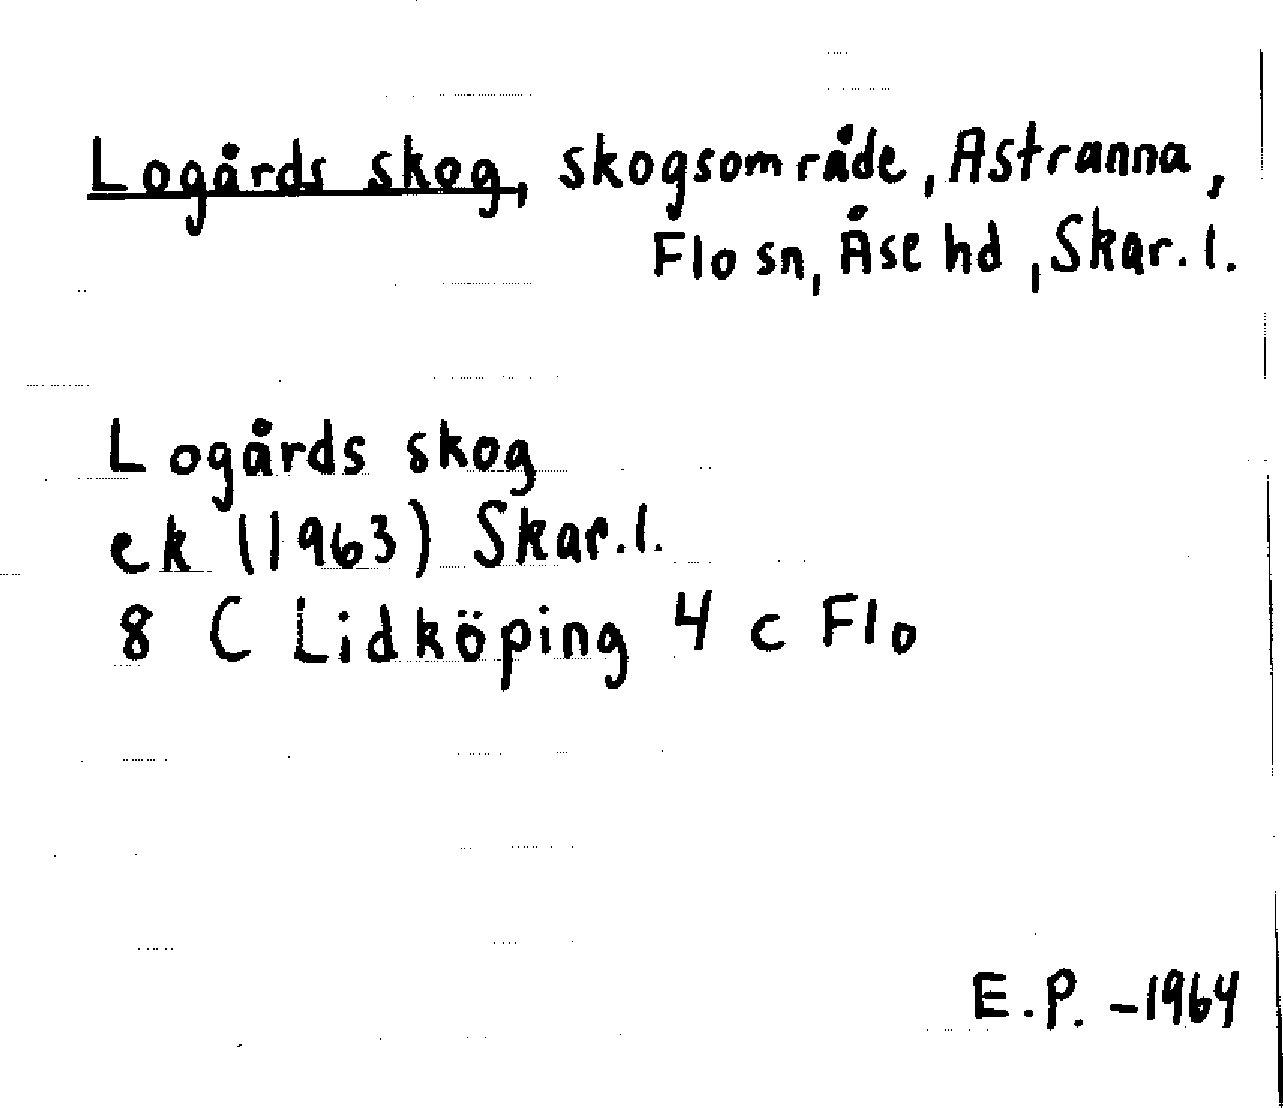 Logårds skog, skogsområde, Astranna,
Flo sn, Åse hd, Skar. l.
Logårds skog
ek (1963) Skar. l.
8 C Lidköping 4 c Flo
E. P. - 1964